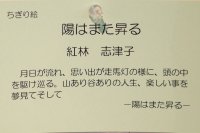 ちぎり絵
陽はまた昇る
紅林 志津子
月日が流れ、思い出が走馬灯の様に、頭の中
を駆け巡る。山あり谷ありの人生、楽しい事を
夢見てそして
―陽はまた昇る―